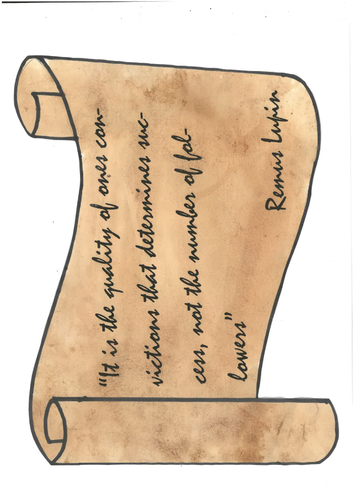 "It is the quality of ones con-
victions that determines suc-
cess, not the number of fol-
lowers"
Remus Lupin